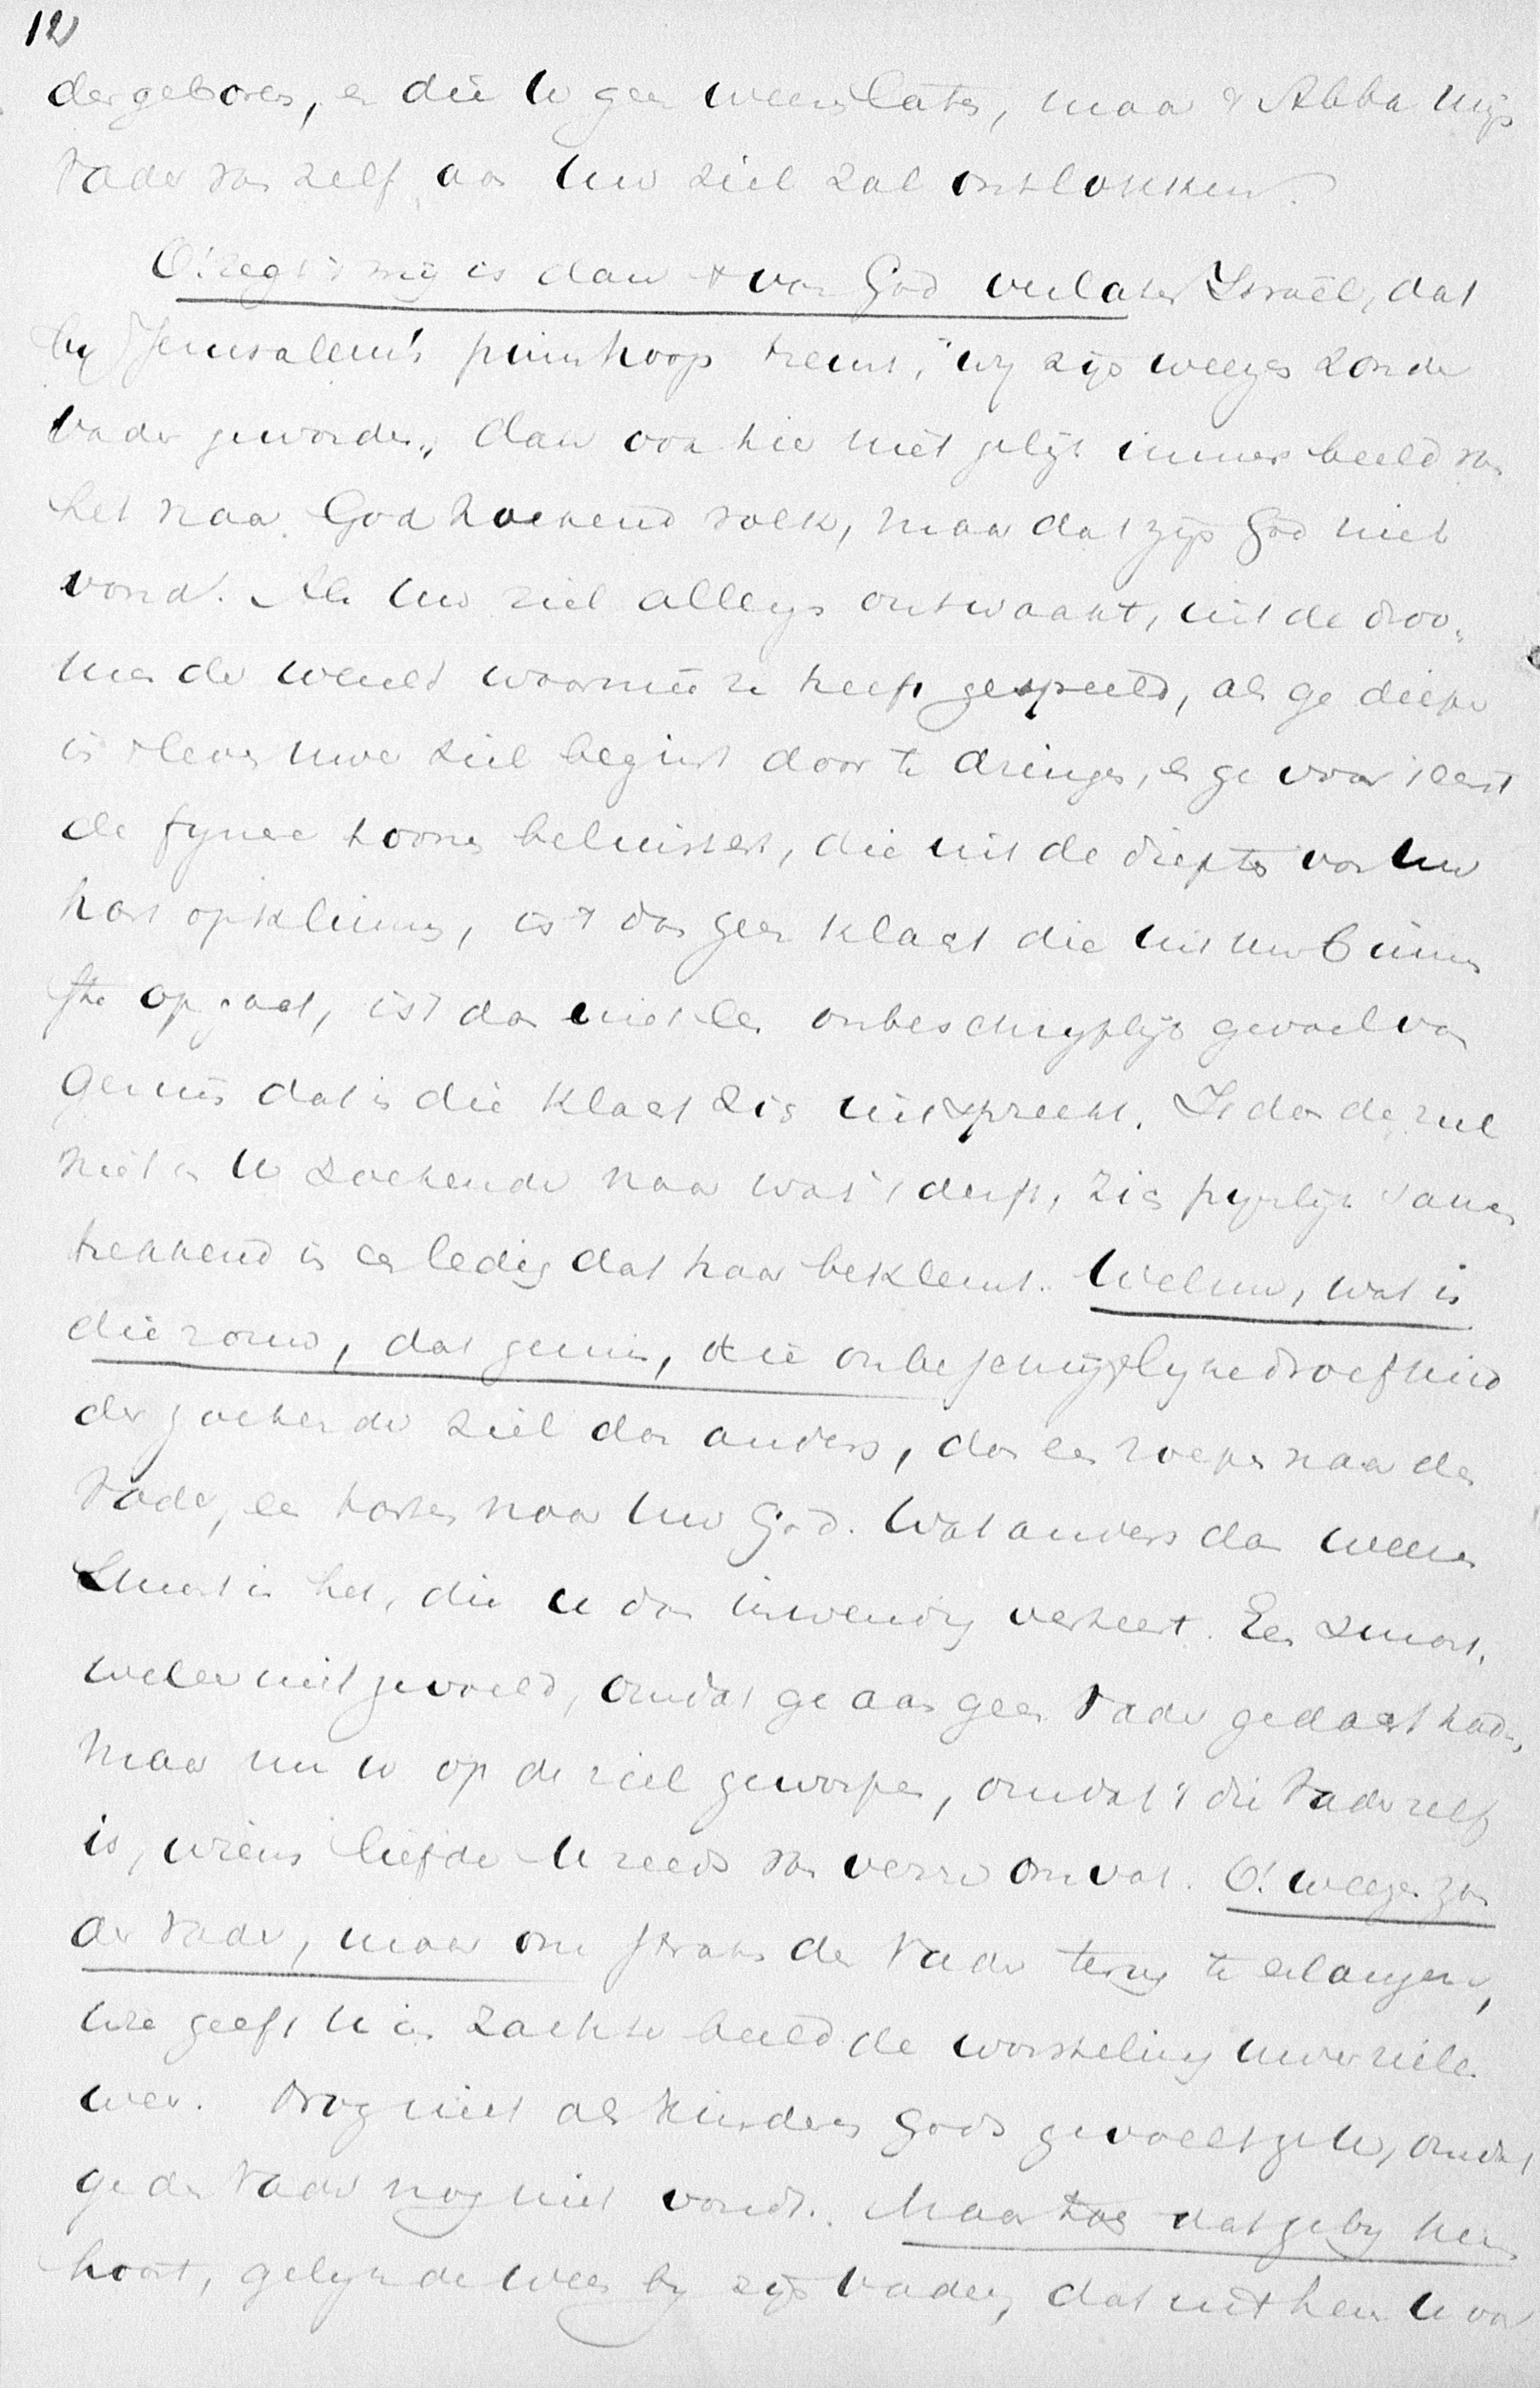 12
dergeboren, en die U geen wees laten, maar 't Abba mijn
Vader van zelf aan Uw ziel zal ontlokken.
O! zegt 't mij is dan 't van God verlaten Israël, dat
by Jerusalem's puinhoop treurt, "wij zijn weezen zonder
Vader geworden", dan ook hier niet gelijk immer beeld van
het naar God zoekend volk, maar dat zijn God niet
vond. Als Uw ziel allengs ontwaakt, uit de droo-
men der wereld waarmeê ze heeft gespeeld, als ge dieper
in 't leven uwer ziel begint door te dringen, en ge voor 't eerst
de fijnere toonen beluistert, die uit de diepte van Uw
hart opklimmen, is 't dan geen klacht die uit uw binnen
ste opgaat, is 't dan niet een onbeschrijflijk gevoel van
gemis dat in die klacht zich uitspreekt. Is dan de ziel
niet in U zoekende naar wat ze derft, zich pijnlijk samen
trekkend in een ledig dat haar beklemt. Welnu, wat is
die rouw, dat gemis, die onbeschrijflijke droefheid
der zoekende ziel dan anders, dan een roepen naar den
Vader, een dorsten naar Uw God. Wat anders dan weezen
smart is het, die U dan inwendig verteert. Een smart,
weleer niet gevoeld, omdat ge aan geen Vader gedacht hadt,
maar nu U op de ziel geworpen, omdat 't die Vader zelf
is, wiens liefde U reeds van verre omvat. O! weezen zon
der Vader, maar om straks den Vader terug te erlangen,
wie geeft U in zachter beeld de worsteling uwer ziele
weer. Nog niet als kinderen Gods gevoelt ge U, omdat
ge den Vader nog niet vondt. Maar toch dat ge by hem
hoort, gelijk de wees by zijn Vader, dat niet hem U voor